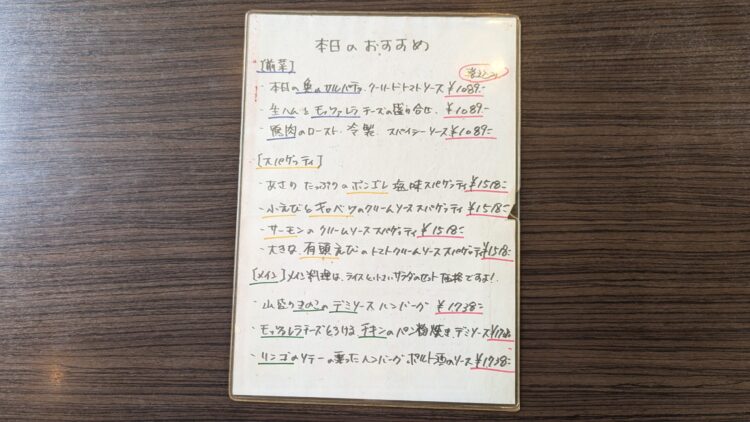 本日のおすすめ
[前菜]
・本日の魚のカルパッチョ クールドトマトソース ¥1089-
・生ハムとモッツァレラチーズの盛り合せ ¥1089-
・鴨肉のロースト 冷製 スパイシーソース ¥1089-
[スパゲッティ]
・あさりたっぷりのボンゴレ 塩味スパゲッティ ¥1518-
・小えびとキャベツのクリームソース スパゲッティ ¥1518-
・サーモンのクリームソース スパゲッティ ¥1518-
・大きな有頭えびのトマトクリームソース スパゲッティ ¥1518-
[メイン] メイン料理は、ライスとサラダのセット価格ですよ!
・山盛りきのこのデミソース ハンバーグ ¥1738-
・モッツァレラチーズとろける チキンのパン粉焼き デミソース ¥1738
・リンゴのソテーの乗ったハンバーグ ポルト酒のソース ¥1738-